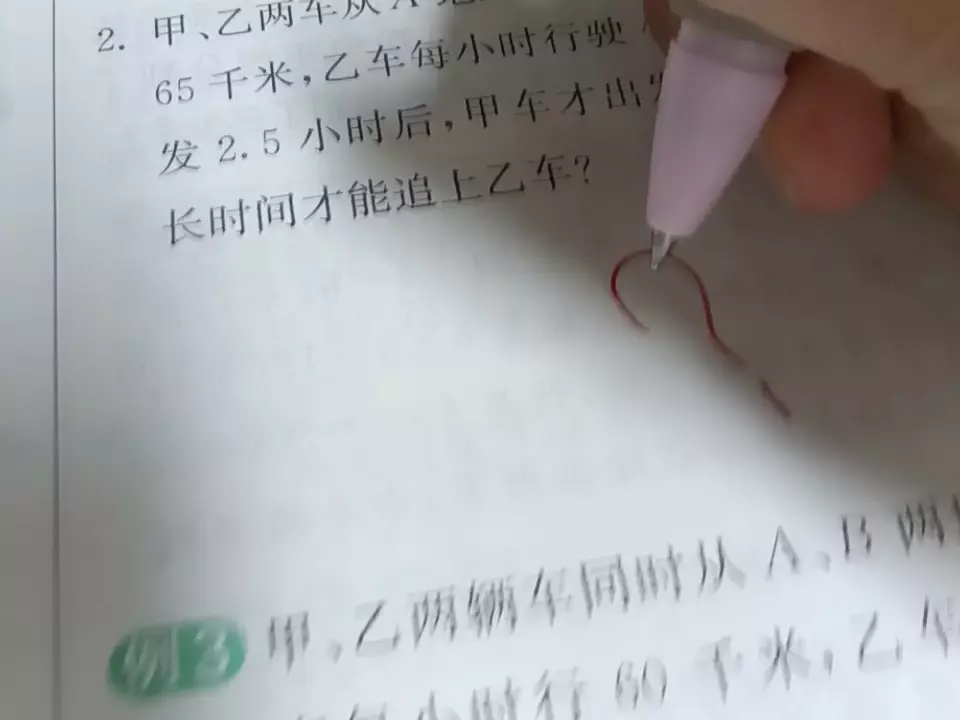 2. 甲、乙两车从 A
65 千米，乙车每小时行驶
发 2.5 小时后，甲车才出发
长时间才能追上乙车？
例3 甲、乙两辆车同时从 A、B 两
每小时行 60 千米，乙车